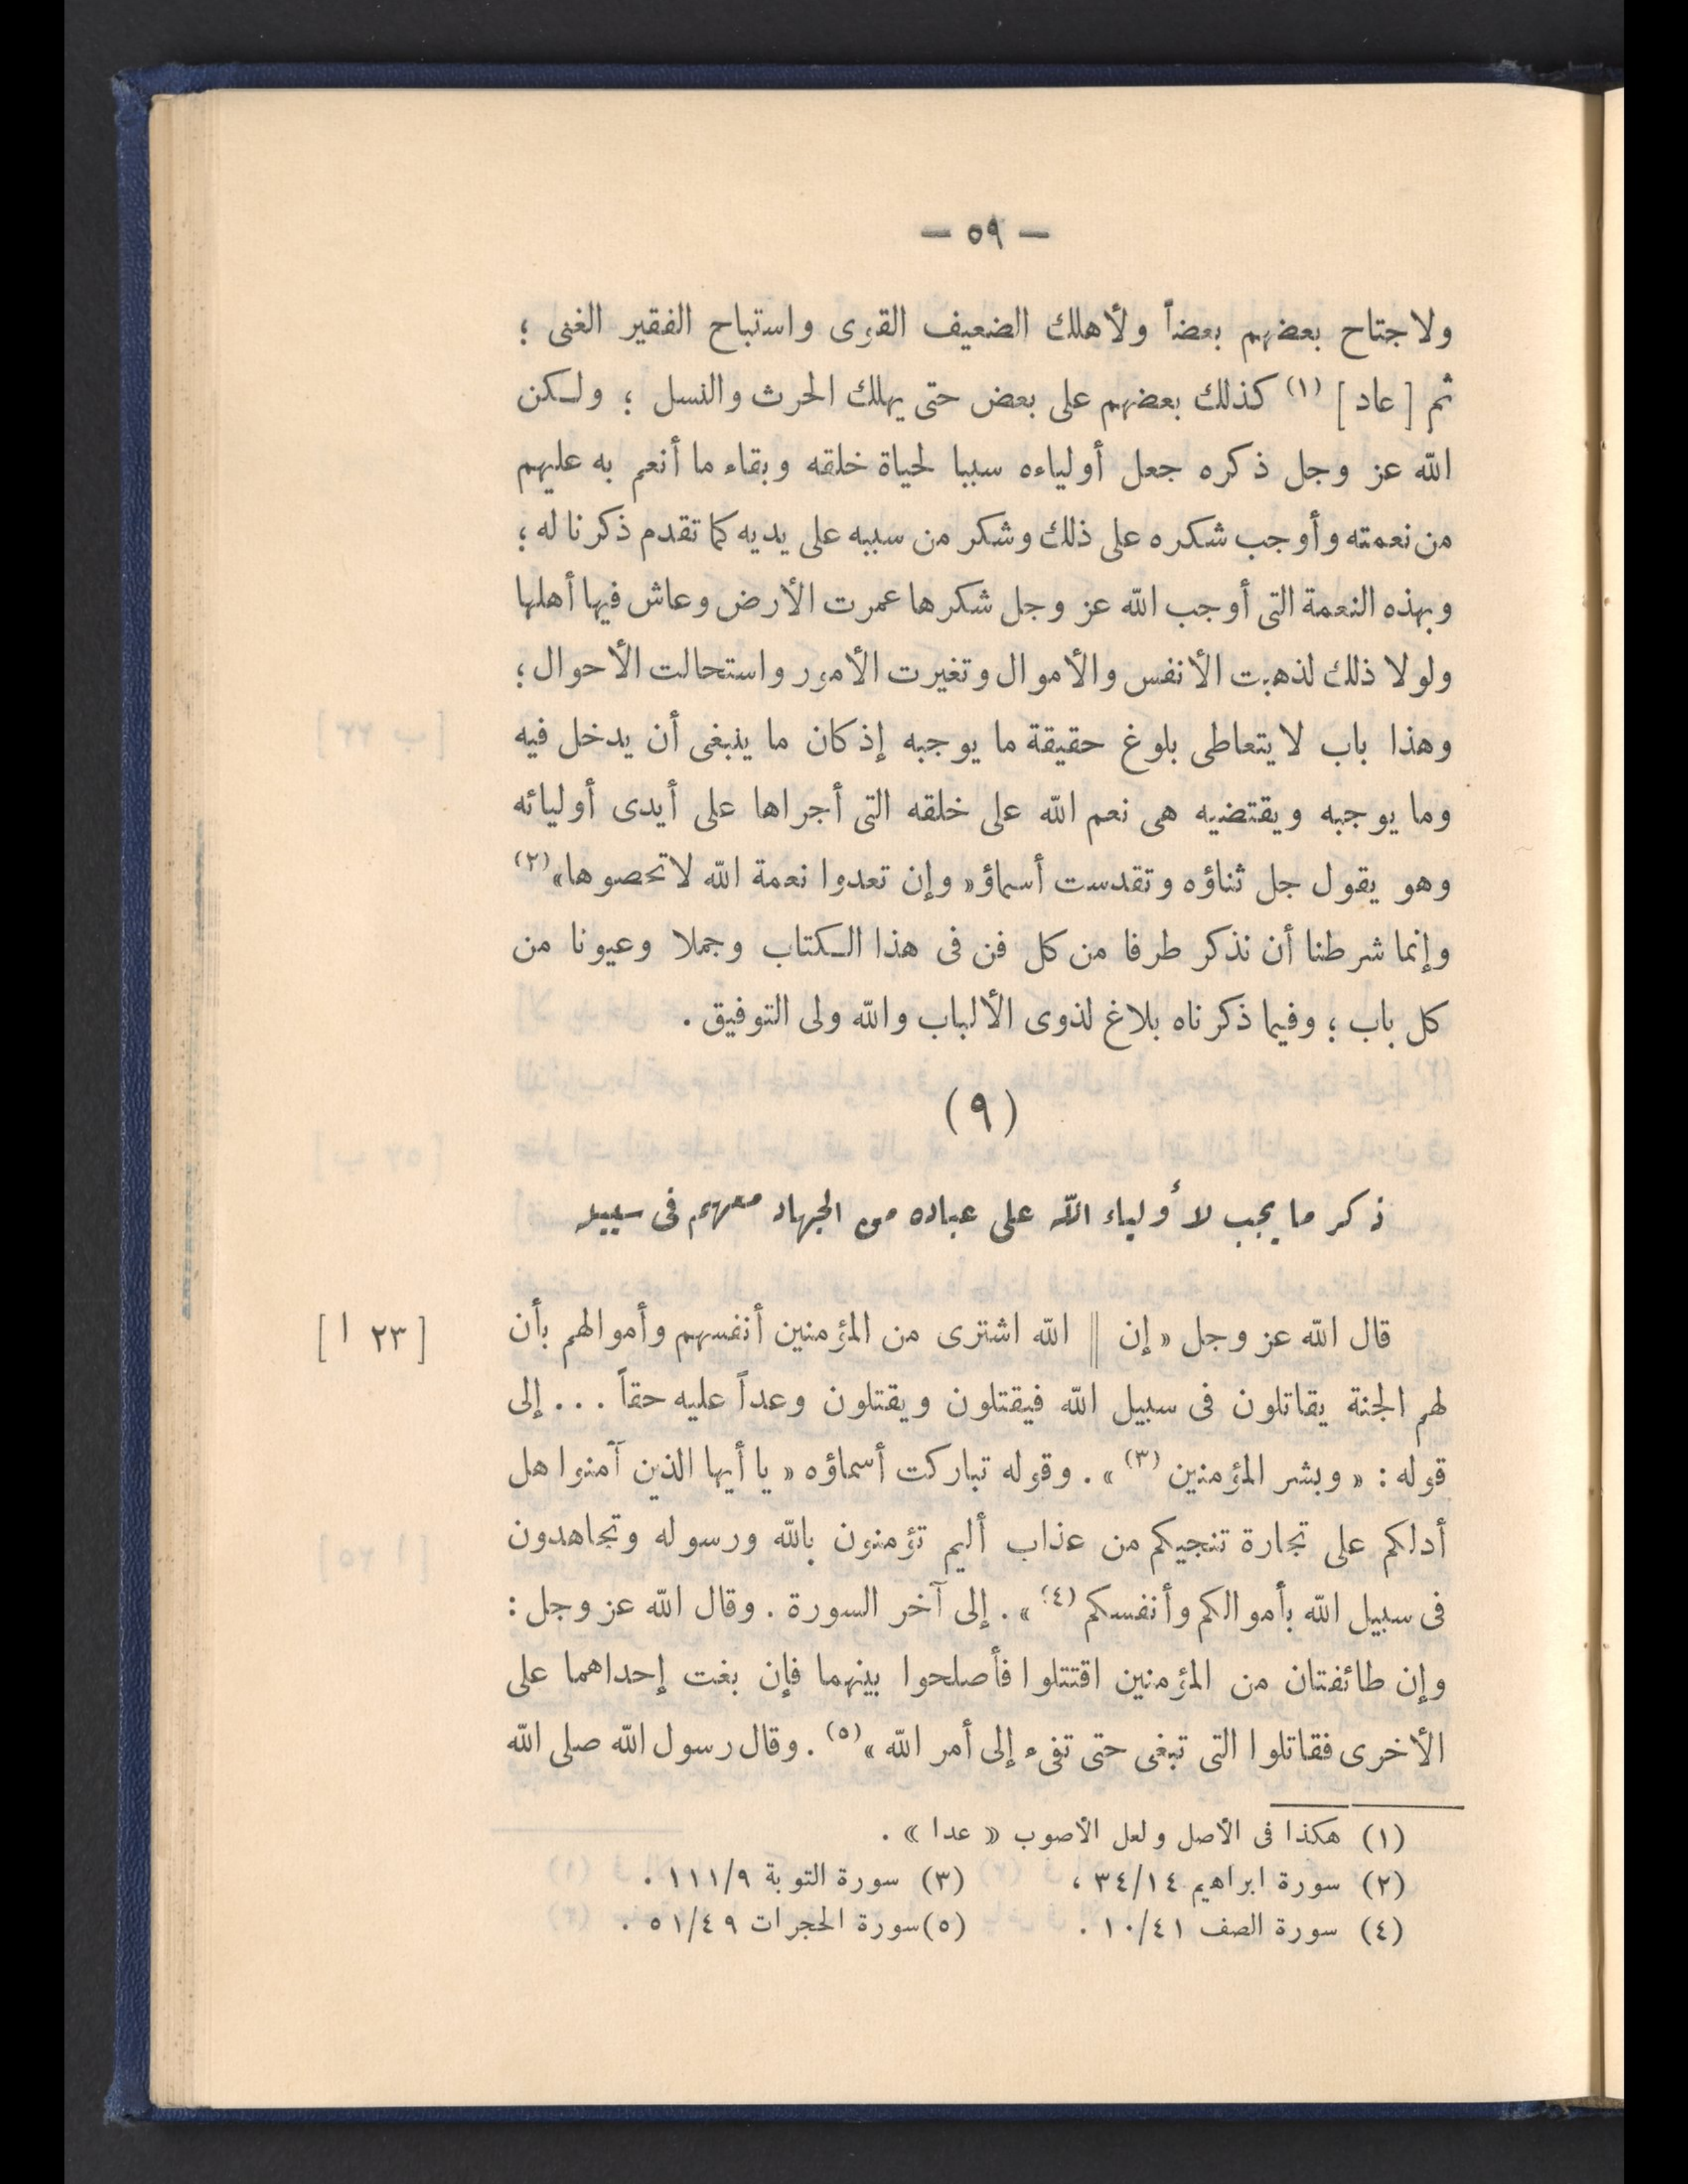 — ٥٩ —
ولاجتاح بعضهم بعضاً ولأهلك الضعيف القوى واستباح الفقير الغنى ؛
ثم [ عاد ] (١) كذلك بعضهم على بعض حتى يهلك الحرث والنسل ؛ ولكن
الله عز وجل ذكره جعل أولياءه سببا لحياة خلقه وبقاء ما أنعم به عليهم
من نعمته وأوجب شكره على ذلك وشكر من سببه على يديه كما تقدم ذكرنا له ؛
وبهذه النعمة التى أوجب الله عز وجل شكرها عمرت الأرض وعاش فيها أهلها
ولولا ذلك لذهبت الأنفس والأموال وتغيرت الأمور واستحالت الأحوال ؛
وهذا باب لا يتعاطى بلوغ حقيقة ما يوجبه إذ كان ما ينبغى أن يدخل فيه
وما يوجبه ويقتضيه هى نعم الله على خلقه التى أجراها على أيدى أوليائه
وهو يقول جل ثناؤه وتقدست أسماؤ « وإن تعدوا نعمة الله لا تحصوها » (٢)
وإنما شرطنا أن نذكر طرفا من كل فن فى هذا الكتاب وجملا وعيونا من
كل باب ؛ وفيما ذكرناه بلاغ لذوى الألباب والله ولى التوفيق .
(٩)
ذكر ما يجب لأولياء الله على عباده من الجهاد معهم فى سبيله
قال الله عز وجل « إن || الله اشترى من المؤمنين أنفسهم وأموالهم بأن [ ٢٣ ا ]
لهم الجنة يقاتلون فى سبيل الله فيقتلون ويقتلون وعداً عليه حقاً ... إلى
قوله : « وبشر المؤمنين (٣) » . وقوله تباركت أسماؤه « يا أيها الذين آمنوا هل
أدلكم على تجارة تنجيكم من عذاب أليم تؤمنون بالله ورسوله وتجاهدون
فى سبيل الله بأموالكم وأنفسكم (٤) » . إلى آخر السورة . وقال الله عز وجل :
وإن طائفتان من المؤمنين اقتتلوا فأصلحوا بينهما فإن بغت إحداهما على
الأخرى فقاتلوا التى تبغى حتى تفىء إلى أمر الله » (٥) . وقال رسول الله صلى الله
(١) هكذا فى الأصل ولعل الأصوب « عدا » .
(٢) سورة ابراهيم ٣٤/١٤ ، (٣) سورة التوبة ١١١/٩ .
(٤) سورة الصف ١٠/٤١ . (٥) سورة الحجرات ٥١/٤٩ .